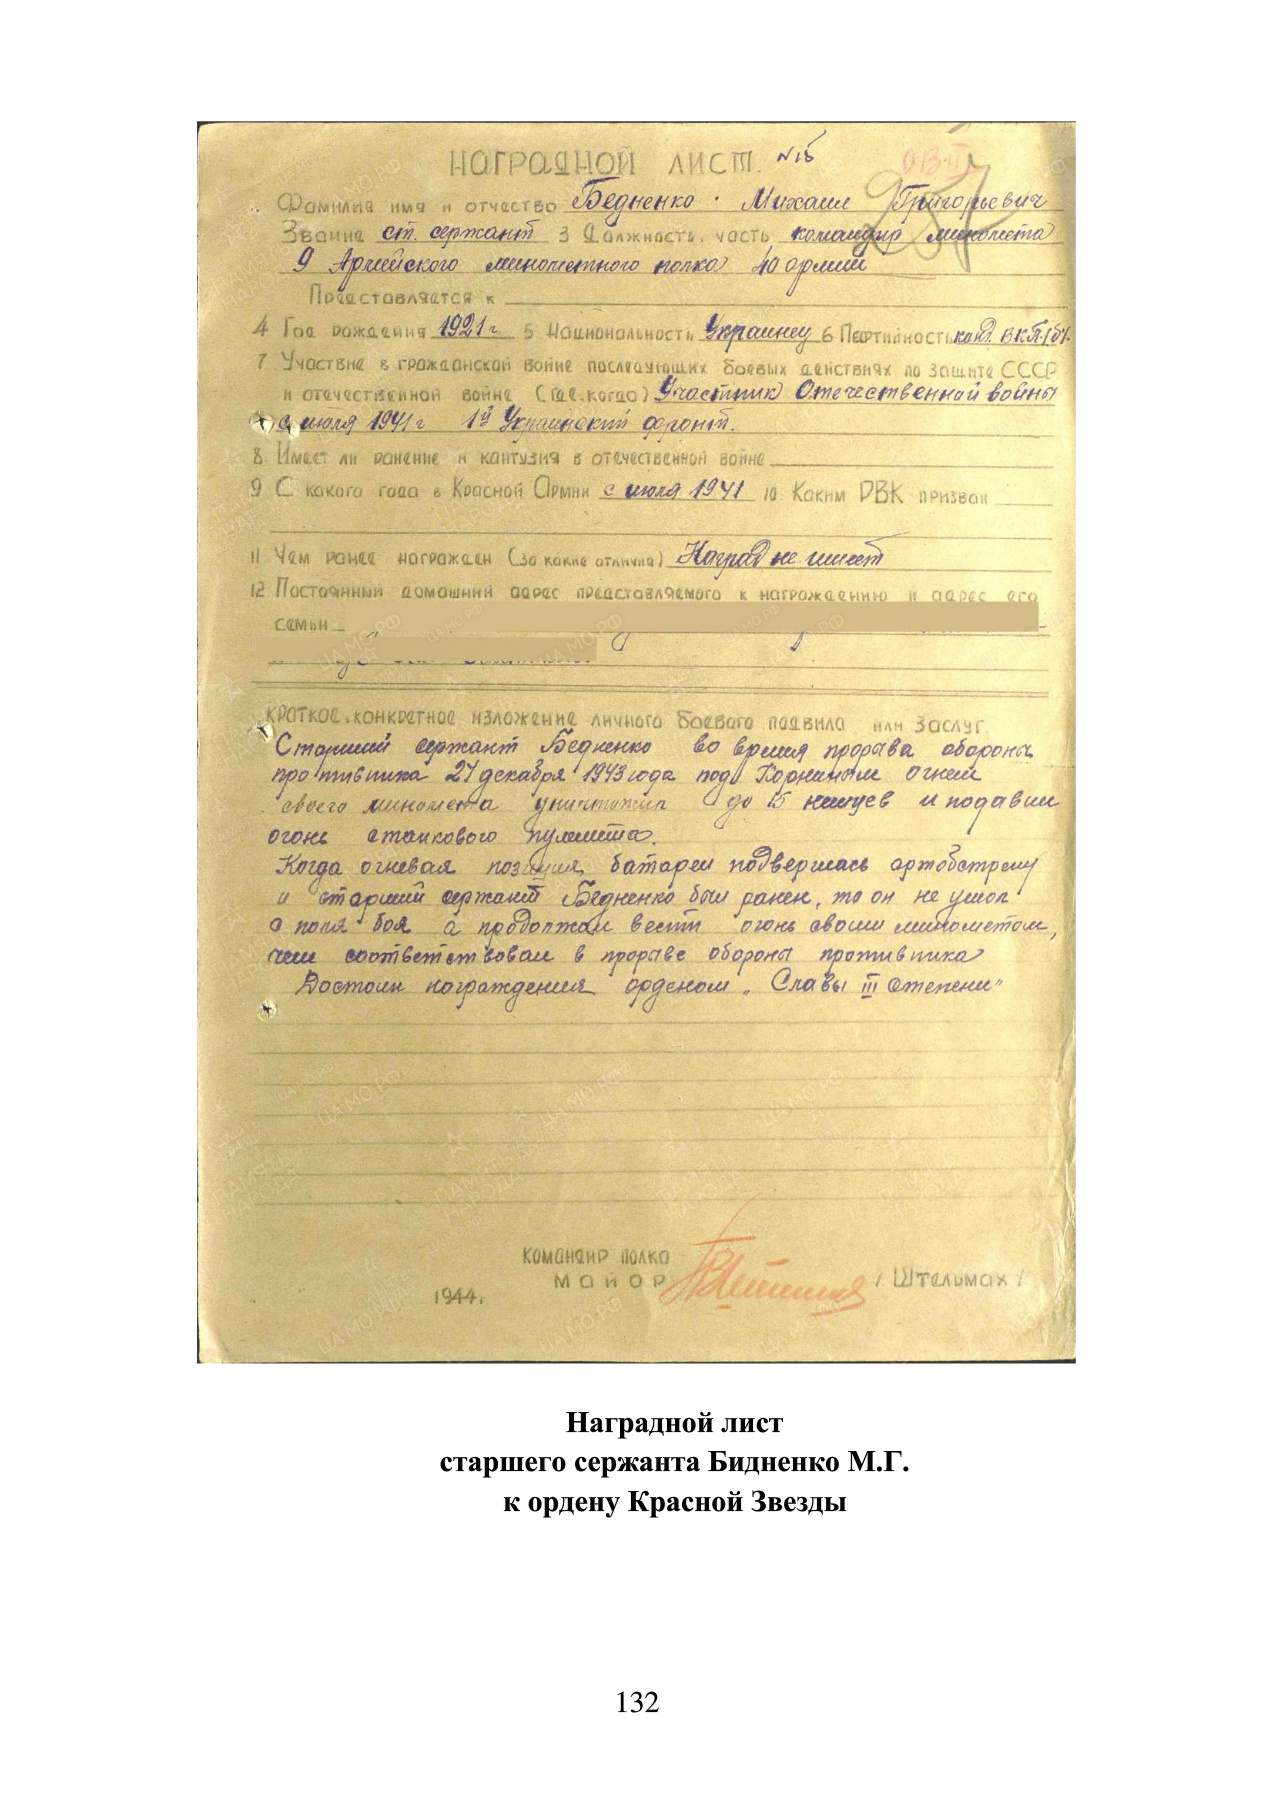 НАГРАДНОЙ ЛИСТ. №15
Фамилия имя и отчество Бедненко Михаил Григорьевич
Звание ст. сержант 3 Должность, часть командир миномета
9 Армейского минометного полка 40 армии
Представляется к
4 Год рождения 1921 г 5 Национальность Украинец 6 Партийность канд. ВКП(б).
7 Участвие в гражданской войне последующих боевых действиях по защите СССР
и отечественной войне (где, когда) Участник Отечественной войны
с июля 1941 г 1й Украинский фронт.
8. Имеет ли ранение и кантузия в отечественной войне
9 С какого года в Красной Армии с июля 1941 10. Каким РВК призван
11 Чем ранее награжден (за какие отличия) Наград не имеет
12 Постоянный домашний адрес представляемого к награждению и адрес его
семьи
КРАТКОЕ, КОНКРЕТНОЕ ИЗЛОЖЕНИЕ ЛИЧНОГО боевого подвига или заслуг
Старший сержант Бедненко во время прорава обороны
противника 24 декабря 1943 года под Корниным огнем
своего миномета уничтожил до 15 немцев и подавил
огонь станкового пулемета.
Когда огневая позиция батареи подверглась артобстрелу
и старший сержант Бедненко был ранен, то он не ушол
с поля боя а продолжал вести огонь своим минометом,
чем соответствовал в прораве обороны противника
Достоин награждения орденом „Славы III степени"
КОМАНДИР ПОЛКА
МАЙОР /Штельмах/
1944.
Наградной лист
старшего сержанта Бидненко М.Г.
к ордену Красной Звезды
132